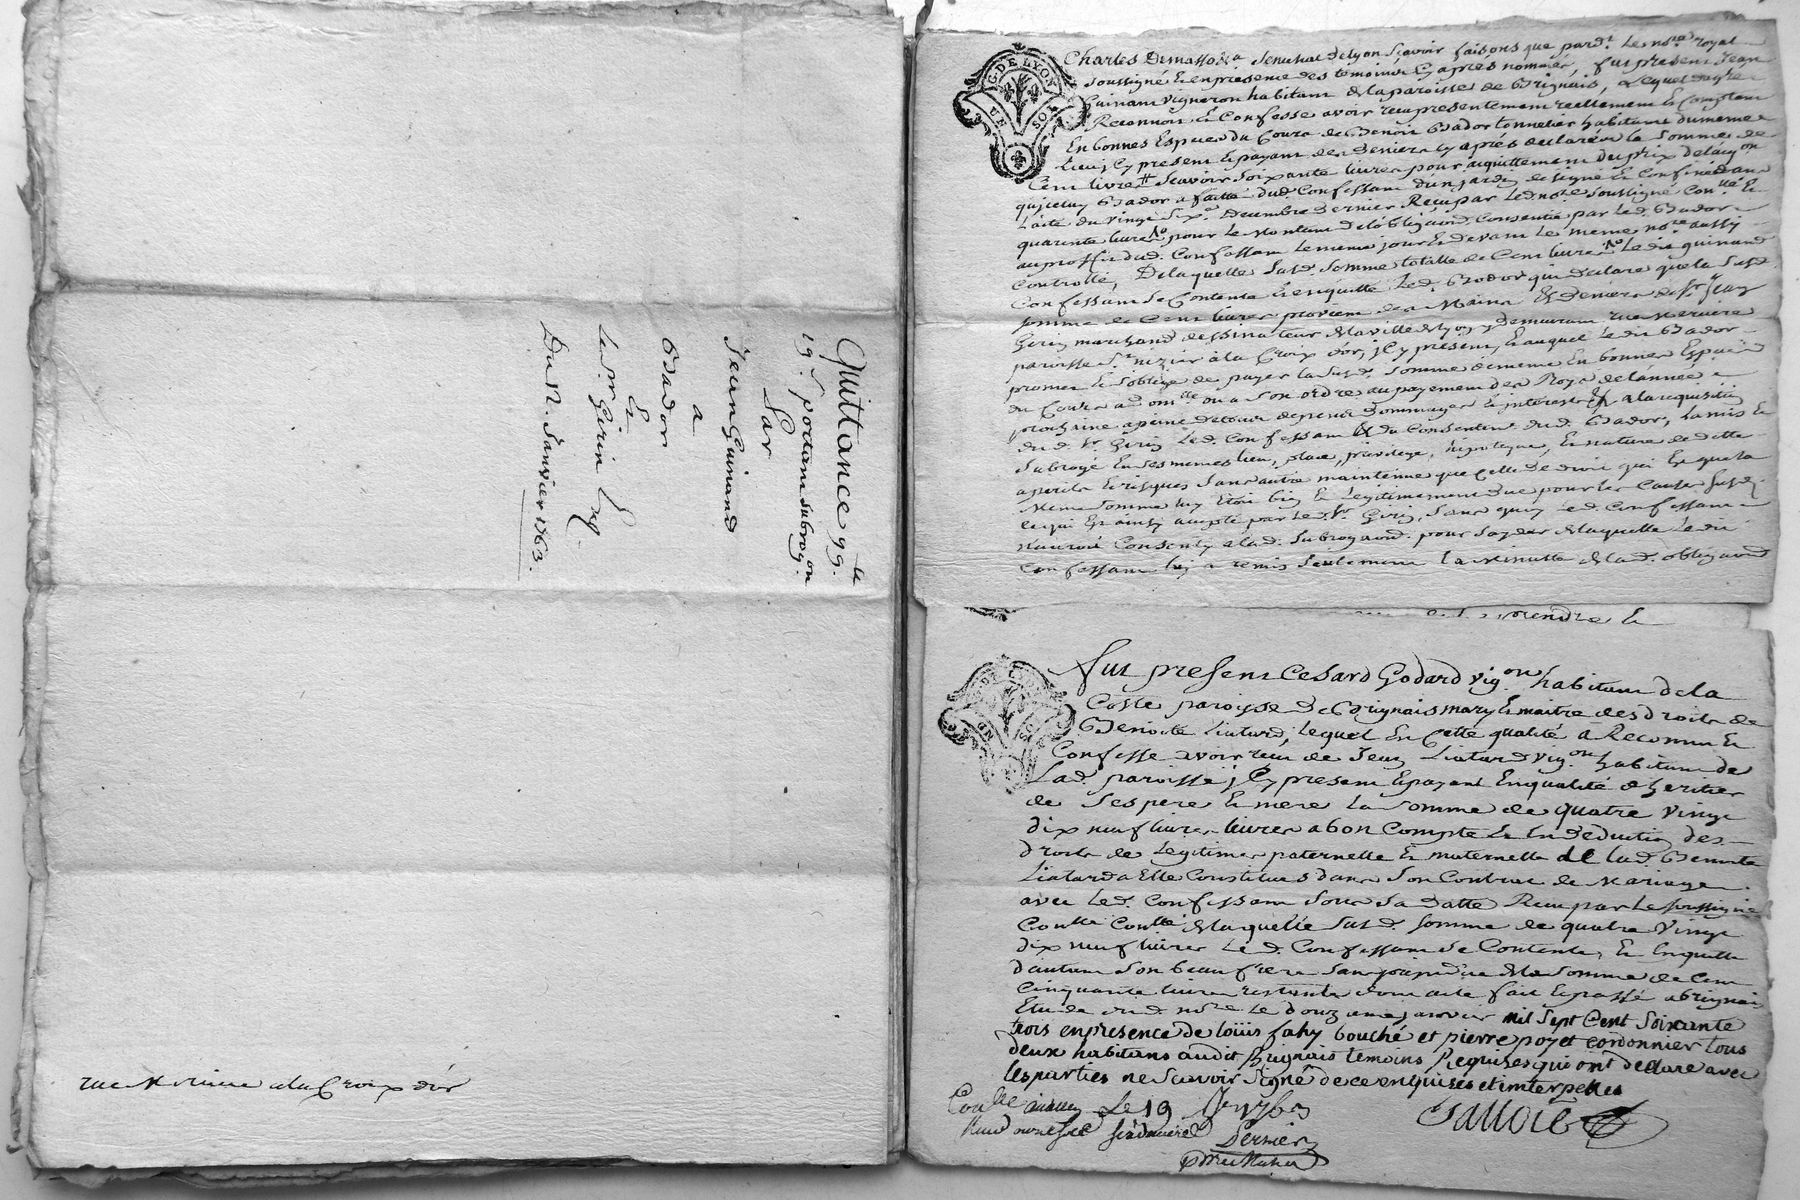 Quittance 99.te
19.s portam subrog.on
Par
Jean Guinand
a
Bador
Et
Le Sr Girin Neg.
Du 12. Janvier 1763.
rue Merciere a la Croix d'or
G. DE LYON
UN SOL
Charles Demasso &a Senechal de Lyon Sçavoir faisons que pard.t le no.re royal
soussigné & en presence des temoins Cy apres nommés, fut present Jean
Guinam vigneron habitant de la paroisse de Brignais, Lequel de gré
Reconnoit & Confesse avoir reçu presentement reellement & Comptam
En bonnes Especes du Cours de Benoit Bador tonnelier habitant du meme
lieu, Cy present & payant des deniers cy aprés declarés la somme de
Cent livres Scavoir Soixante livres pour acquittement du prix de la q.on
qu'iceluy Bador a faitte dud. Confessam d'un jardin designé & Confiné dans
l'acte du vingt six.e decembre dernier Reçu par led. no.re soussigné Con.llé &
quarente livres pour le montant de l'obligaõn Consentie par led. Bador
au proffit dud. Confessam le meme jour & devant le meme no.re aussy
Controllé, De laquelle susd. somme totalle de Cent livres led. Guinand
Confessam se Contente & en quitte led. Bador qui declare que la susd.
somme de Cent livres provient des Mains & deniers de Sr Jean
Girin marchand dessinateur de la ville de Lyon y demeurant rue Merciere
paroisse St nizier à la Croix d'or, jCy present, & auquel le dit Bador
promet & s'oblige de payer la susd. somme de meme En bonnes Especes
du Cours a d. ou a son ordre au payement des Roys de l'année
prochaine a peine de tous depens dommages & interests & a la requisition
du d. Sr Girin led. Confessam du Consentem. du d. Bador, l'a mis &
subrogé En ses memes lieu, place, privilege, hipoteque, & nature de dette
a perils & risques sans autre maintenue que Celle de droit qui Est que la
Meme somme luy Etoit bien & legitimement due pour les Causes susd.
ce qui Est ainsy accepté par led. Sr Girin, sans quoy led. Confessam
n'auroit Consenty a lad. subrogaõn. pour Sayder de laquelle le dit
Confessam luy a remis seulement la Minutte de lad. obligaõn
prendre &
G. DE LYON
UN SOL
Fut present Cesard Godard vig.on habitant de la
Coste paroisse de Brignais mary & maitre des droits de
Benoite Liatard, lequel En Cette qualité a Reconnu &
Confesse avoir reçu de Jean Liatard vig.on habitant de
Lad. paroisse jCy present & payant En qualité d'heritier
de ses pere & mere la somme de quatre vingt
dix neuf livres livres a bon Compte & En deduction des
droits de Legitimes paternelle & maternelle de lad. Benoite
Liatard a Elle Constitués dans son Contrat de Mariage
avec led. Confessam sous sa datte Reçu par le soussigné
Con.lle de laquelle susd. somme de quatre vingt
dix neuf livres le d. Confessam se Contente, & En quitte
d'autant son beau frere sans prejudice de la somme de Cent
Cinquante livres restante dont acte fait & passé a brignais
Etude dud. no.re le douzieme janvier mil Sept Cent Soixante
trois en presence de loüis fahy bouché et pierre poyet cordonnier tous
deux habitans audit Brignais temoins Requises qui ont declare avec
les parties ne scavoir signe de ce enquises et interpellés
Con.lle Le 19 1763